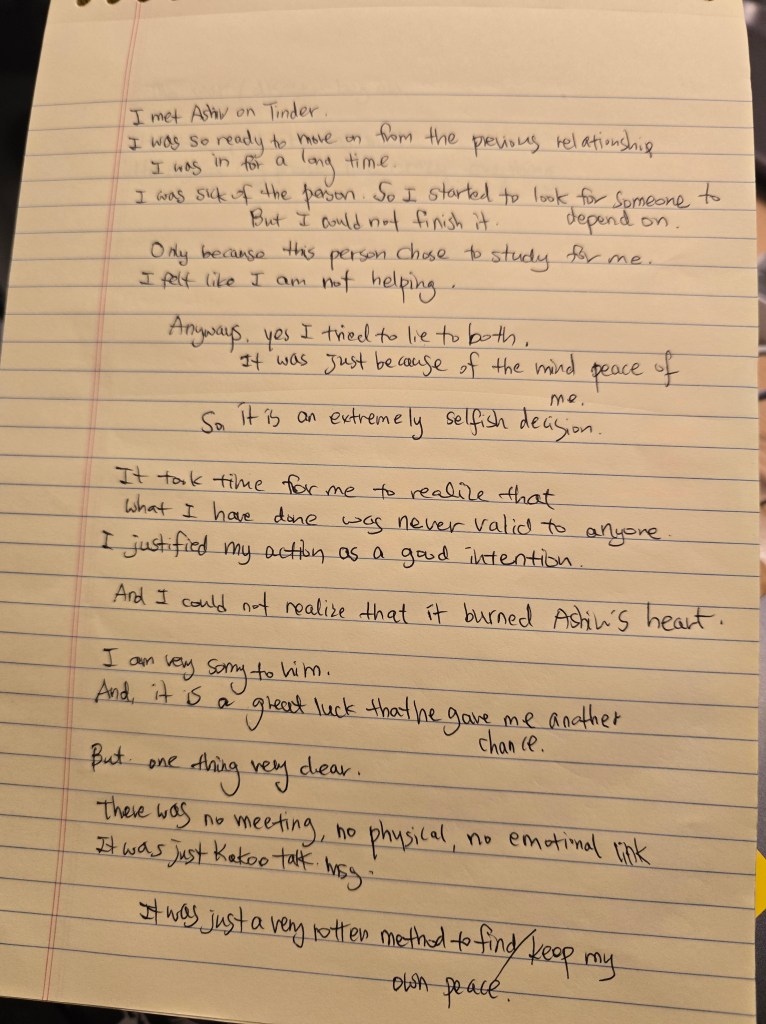 I met Ashiv on Tinder.
I was so ready to move on from the previous relationship
I was in for a long time.
I was sick of the person. So I started to look for someone to
But I could not finish it. depend on.
Only because this person chose to study for me.
I felt like I am not helping.
Anyways, yes I tried to lie to both.
It was just because of the mind peace of
me.
So it is an extremely selfish decision.
It took time for me to realize that
what I have done was never valid to anyone.
I justified my action as a good intention.
And I could not realize that it burned Ashiv's heart.
I am very sorry to him.
And, it is a great luck that he gave me another
chance.
But one thing very clear.
There was no meeting, no physical, no emotional link
It was just Kakao talk msg.
It was just a very rotten method to find/keep my
own peace.